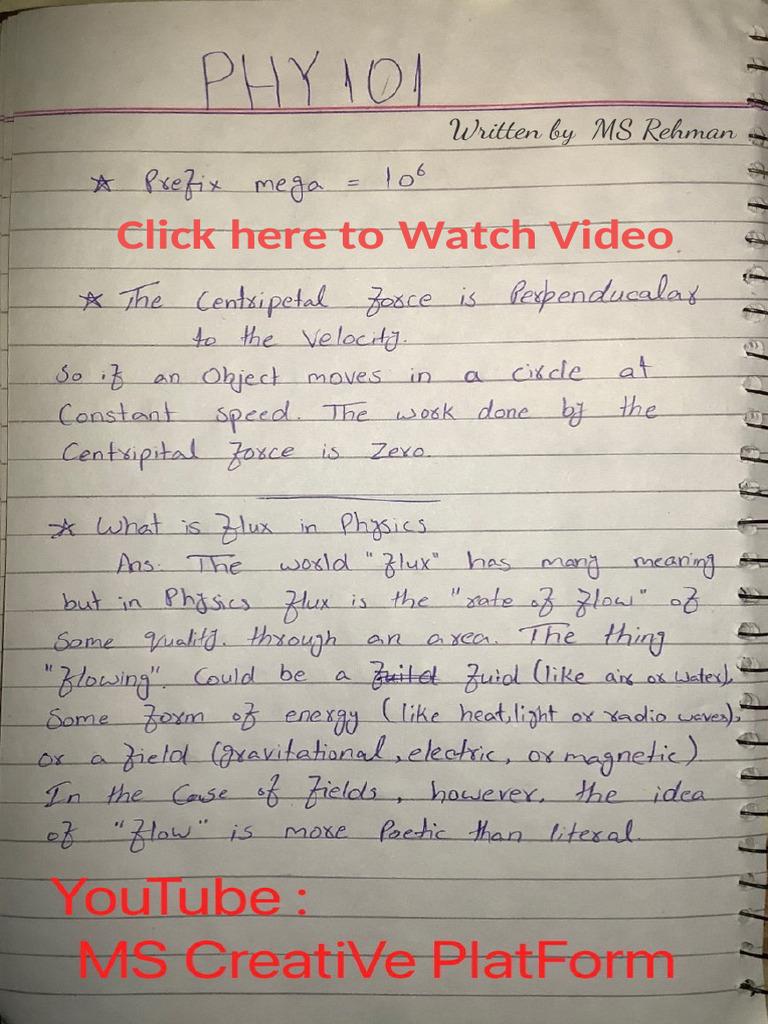 PHY 101
Written by MS Rehman
☆ Prefix mega = 10⁶
Click here to Watch Video
☆ The Centripetal force is Perpenducalar
to the Velocity.
So if an Object moves in a circle at
Constant speed. The work done by the
Centripital force is Zero.
☆ What is flux in Physics
Ans. The world "flux" has many meaning
but in Physics flux is the "rate of flow" of
Some quality. through an area. The thing
"flowing". Could be a fuild fuid (like air or water),
Some form of energy (like heat, light or radio waves),
or a field (gravitational, electric, or magnetic)
In the Case of fields, however, the idea
of "flow" is more Poetic than literal.
YouTube :
MS CreatiVe PlatForm